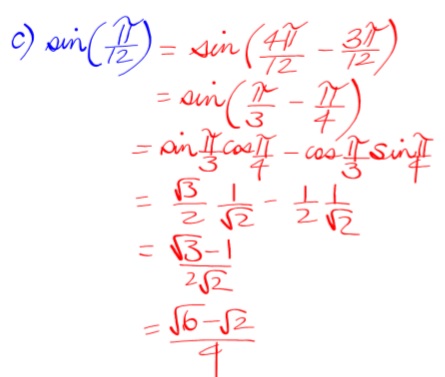 c) sin(π/12) = sin(4π/12 - 3π/12)
= sin(π/3 - π/4)
= sin π/3 cos π/4 - cos π/3 sin π/4
= √3/2 1/√2 - 1/2 1/√2
= √3-1/2√2
= √6-√2/4